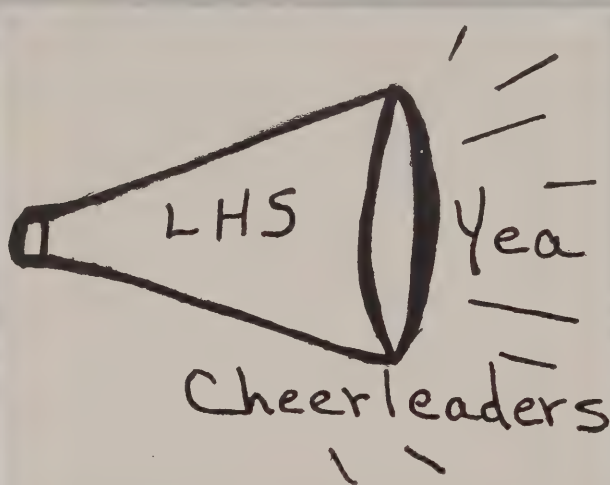 LHS
Yea
Cheerleaders